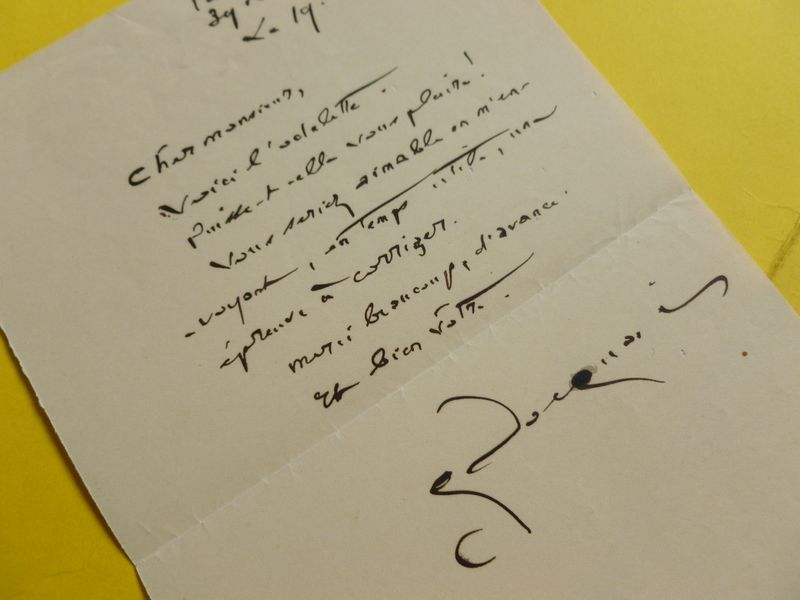 Le 19.
Cher monsieur,
Voici l'odelette.
Puisse-t-elle vous plaire!
Vous seriez aimable en m'en-
-voyant, en temps utile, une
épreuve à corriger.
merci beaucoup, d'avance.
Et bien vôtre.